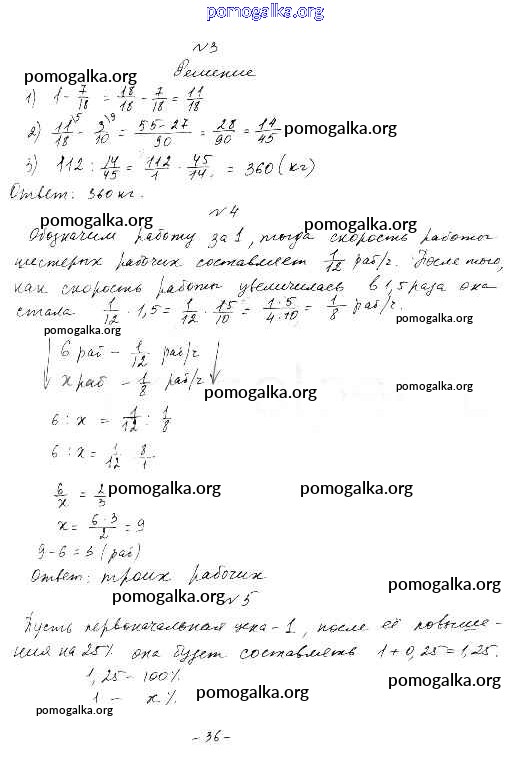 pomogalka.org
N3
pomogalka.org
Решение
1) 1 - 7/18 = 18/18 - 7/18 = 11/18
2) 11/18 \5 - 3/10 \9 = 55-27/90 = 28/90 = 14/45 pomogalka.org
3) 112 : 14/45 = 112/1 · 45/14 = 360 (кг)
Ответ: 360 кг.
N4
pomogalka.org pomogalka.org
Обозначим работу за 1, тогда скорость работы
шестерых рабочих составляет 1/12 раб/г. После того,
как скорость работы увеличилась в 1,5 раза она
стала 1/12 · 1,5 = 1/12 · 15/10 = 1·5/4·10 = 1/8 раб/г.
pomogalka.org pomogalka.org
6 раб - 1/12 раб/г
x раб - 1/8 раб/г
pomogalka.org pomogalka.org
6 : x = 1/12 : 1/8
6 : x = 1/12 8/1
6/x = 2/3 pomogalka.org pomogalka.org
x = 6·3/2 = 9
9 - 6 = 3 (раб)
Ответ: троих рабочих
pomogalka.org
pomogalka.org
N5
Пусть первоначальная цена - 1, после её повыше-
ния на 25% она будет составлять 1 + 0,25 = 1,25.
1,25 - 100%
pomogalka.org
1 - x%.
pomogalka.org
pomogalka.org
- 36 -